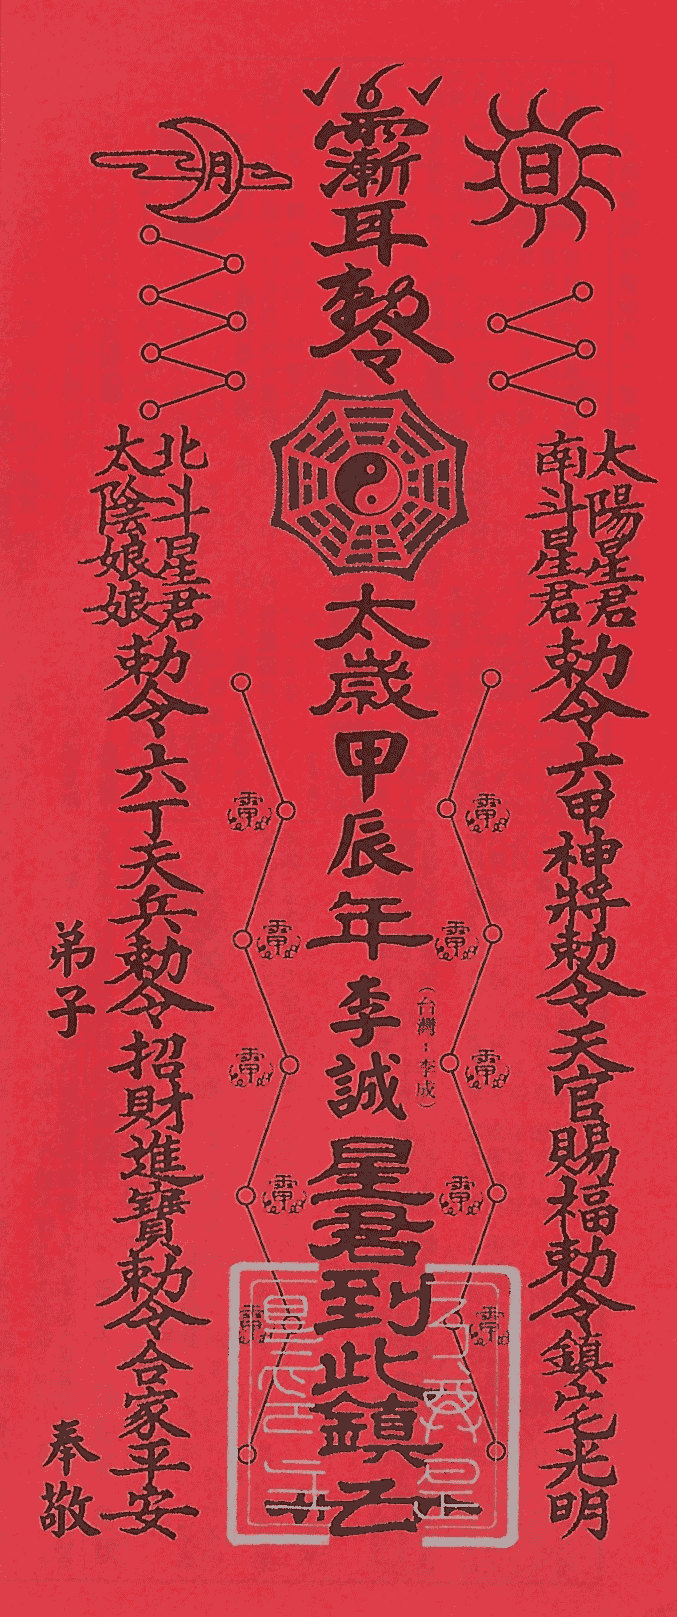 日
太陽星君
南斗星君
勅令六甲神將勅令天官賜福勅令鎮宅光明
耳勅令
太歲甲辰年李誠星君到此鎮
(台灣:李成)
月
北斗星君
太陰娘娘
勅令六丁天兵勅令招財進寶勅令合家平安
弟子
奉敬